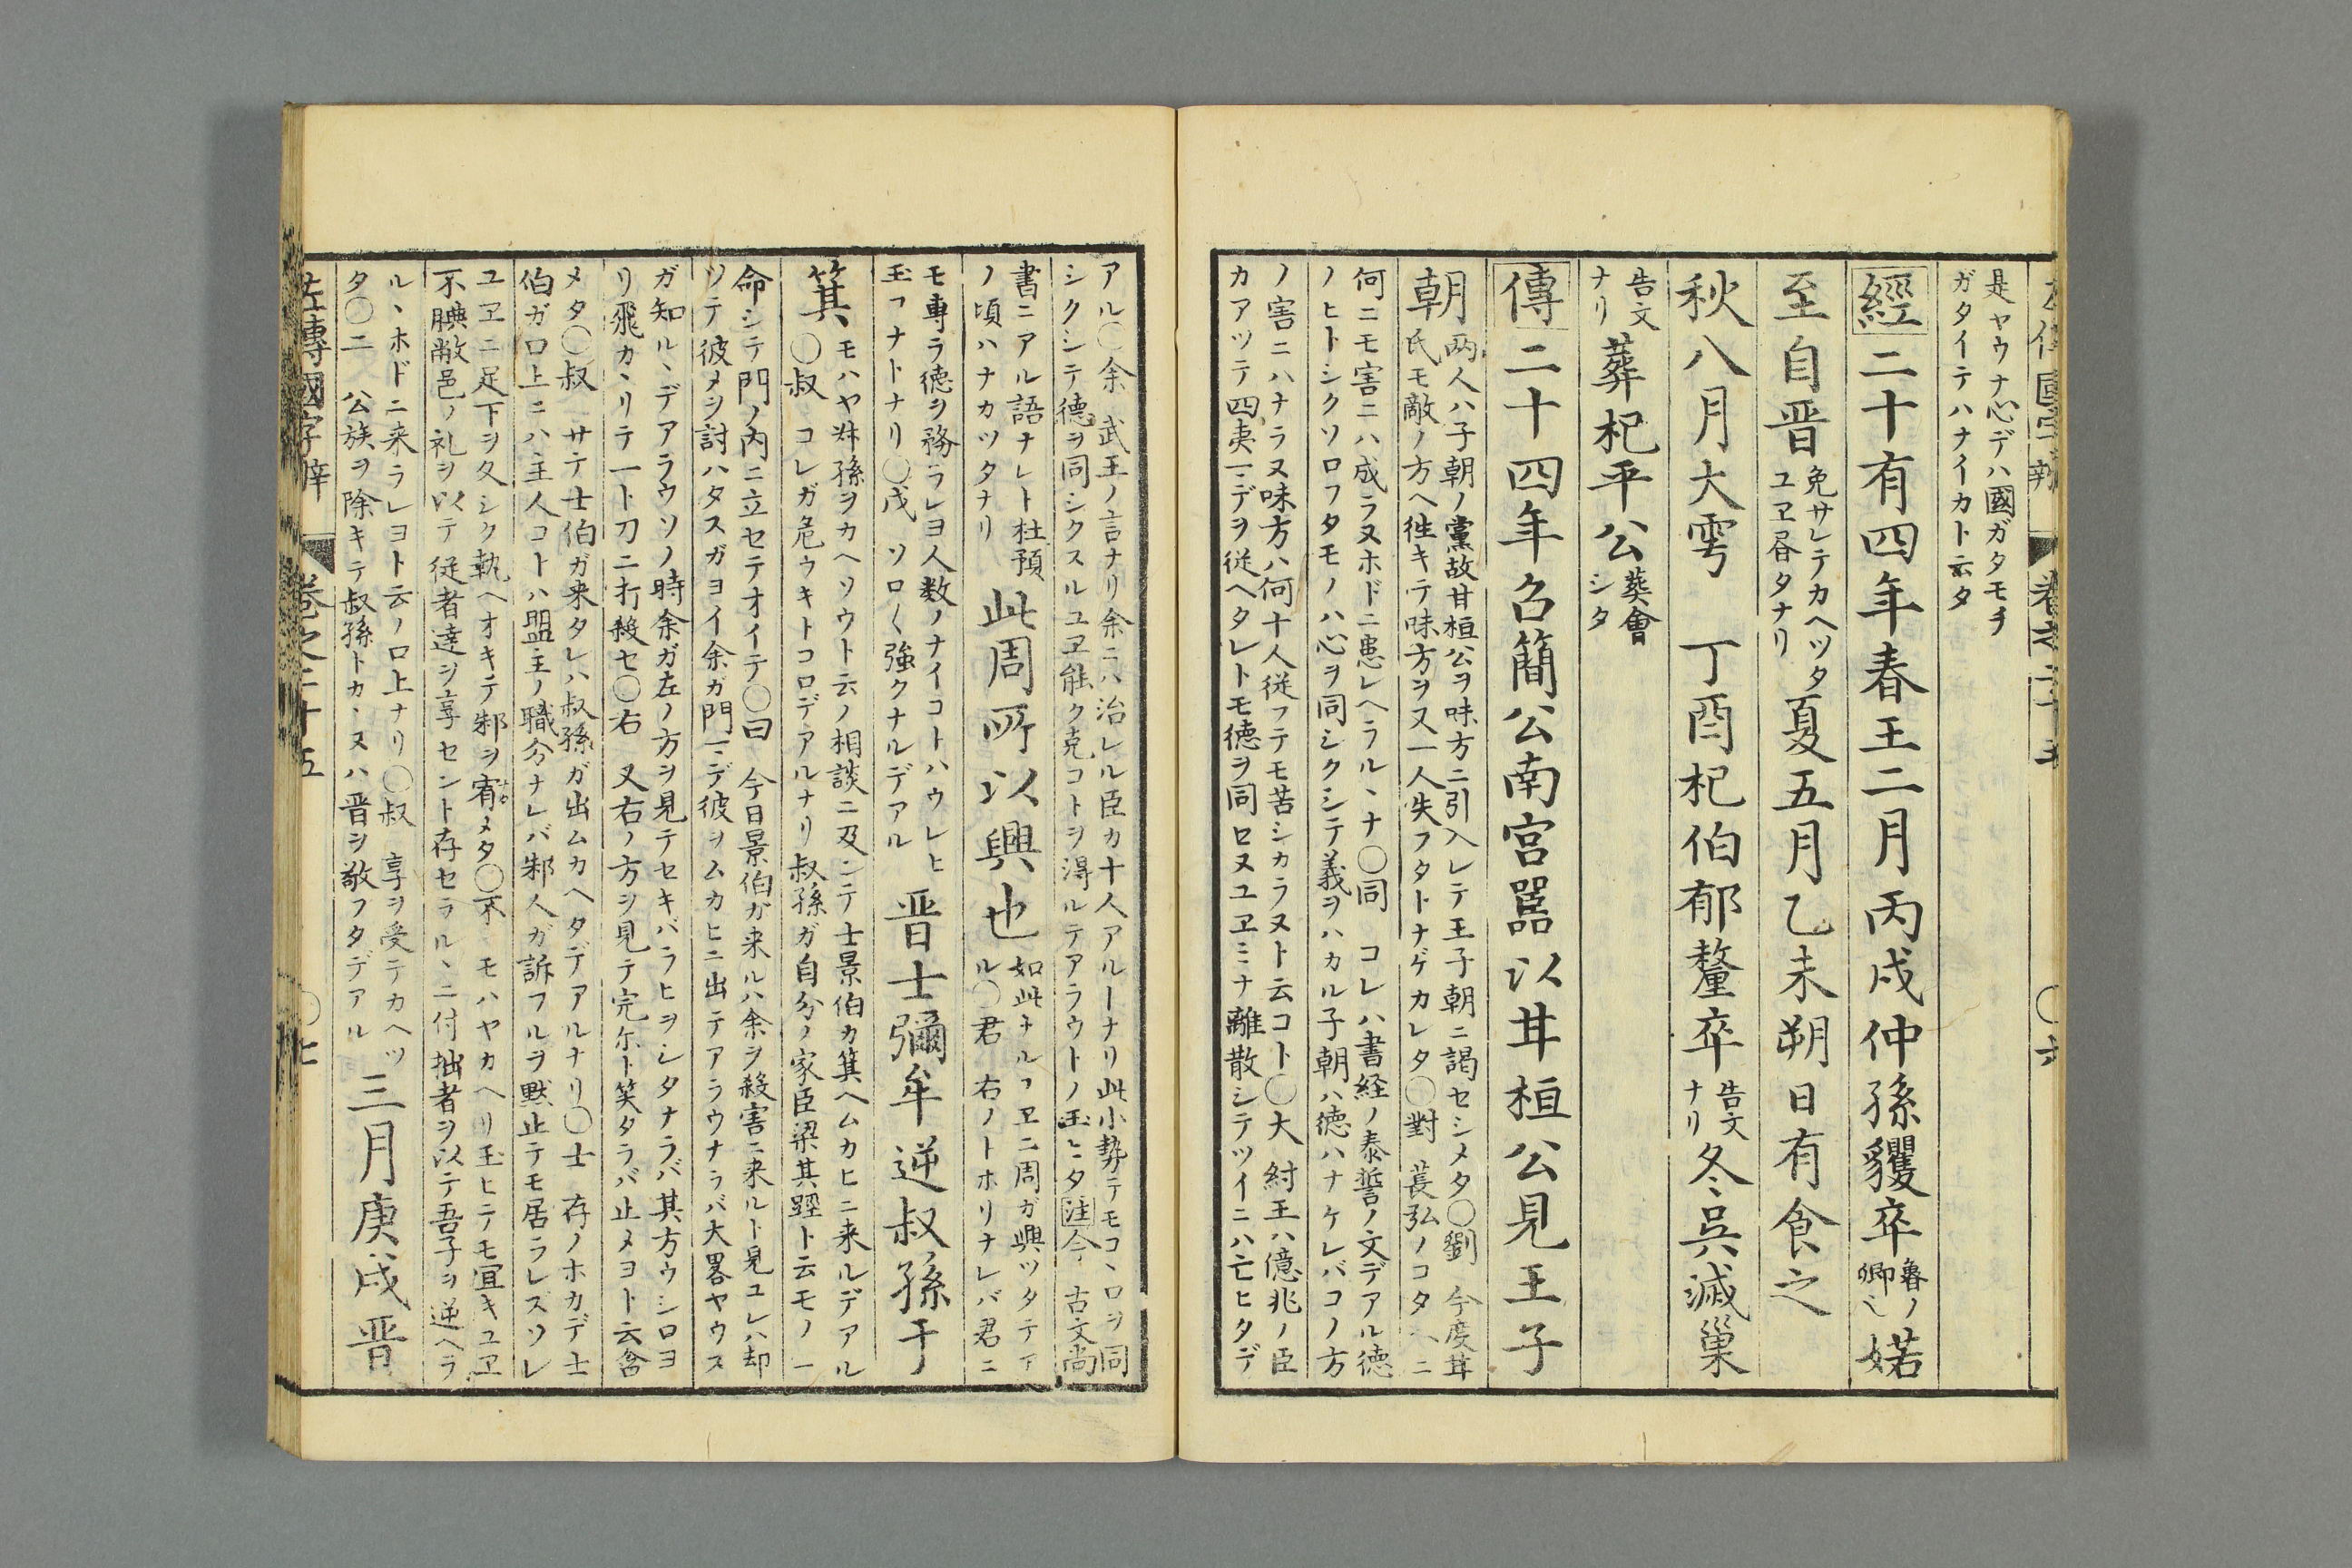 是ヤウナ心デハ國ガタモチ
ガタイテハナイカト云タ
經二十有四年春王二月丙戌仲孫貜卒
魯ノ
卿也
婼
至自晋
免サレテカヘツタ
ユヱ各タナリ
夏五月乙未朔日有食之
秋八月大雩 丁酉杞伯郁釐卒
告文
ナリ
冬呉滅巢
告文
ナリ
葬杞平公
葬會
シタ
傳二十四年召簡公南宮嚚以甘桓公見王子
朝
两人ハ子朝ノ黨故甘桓公ヲ味方ニ引入レテ王子朝ニ謁セシメタ○劉 今度甘
氏モ敵ノ方ヘ徃キテ味方ヲ又一人失フタトナゲカレタ○對 萇弘ノコタヘニ
何ニモ害ニハ成ラヌホドニ患レヘラル、ナ○同 コレハ書経ノ泰誓ノ文デアル徳
ノヒトシクソロフタモノハ心ヲ同シクシテ義ヲハカル子朝ハ徳ハナケレバコノ方
ノ害ニハナラヌ味方ハ何十人従フテモ苦シカラヌト云コト○大 紂王ハ億兆ノ臣
カアツテ四夷マデヲ従ヘタレトモ徳ヲ同セヌユヱミナ離散シテツイニハ亡ヒタデ
アル○余 武王ノ言ナリ余ニハ治レル臣カ十人アルーナリ此小勢テモコ、ロヲ同
シクシテ徳ヲ同シクスルユヱ能ク克コトヲ得ルテアラウトノ玉ヒタ注今 古文尚
書ニアル語ナレト杜預
ノ頃ハナカツタナリ
此周所以興也
如此ナルユヱニ周ガ興ツタテア
ル○君 右ノトホリナレバ君ニ
モ専ラ徳ヲ務ラレヨ人数ノナイコトハウレヒ
玉フナトナリ○戊 ソロ〱強クナルデアル
晋士彌牟逆叔孫于
箕
モハヤ叔孫ヲカヘソウト云ノ相談ニ及ンテ士景伯カ箕ヘムカヒニ来ルデアル
○叔 コレガ危ウキトコロデアルナリ叔孫ガ自分ノ家臣梁其踁ト云モノ一
命シテ門ノ内ニ立セテオイテ○曰 今日景伯ガ来ルハ余ヲ殺害ニ来ルト見ユレハ却
ツテ彼メヲ討ハタスガヨイ余ガ門マデ彼ヲムカヒニ出テアラウナラバ大畧ヤウス
ガ知ル、デアラウソノ時余ガ左ノ方ヲ見テセキバラヒヲシタナラバ其方ウシロヨ
リ飛カ、リテ一ト刀ニ打殺セ○右 又右ノ方ヲ見テ完尓ト笑タラバ止メヨト云含
メタ○叔 サテ士伯ガ来タレハ叔孫ガ出ムカヘタデアルナリ○士 存ノホカデ士
伯ガ口上ニハ主人コトハ盟主ノ職分ナレバ邾人ガ訴フルヲ黙止テモ居ラレズソレ
ユヱニ足下ヲ久シク執ヘオキテ邾ヲ宥メタ○不 モハヤカヘリ玉ヒテモ宜キユヱ
不腆敝邑ノ礼ヲ以テ従者達ヲ享セント存セラル、ニ付拙者ヲ以テ吾子ヲ逆ヘラ
ル、ホドニ来ラレヨト云ノ口上ナリ○叔 享ヲ受テカヘツ
タ○二 公族ヲ除キテ叔孫トカ、ヌハ晋ヲ敬フタデアル
三月庚戌晋
左傳國字辯 卷之二十五 ○七